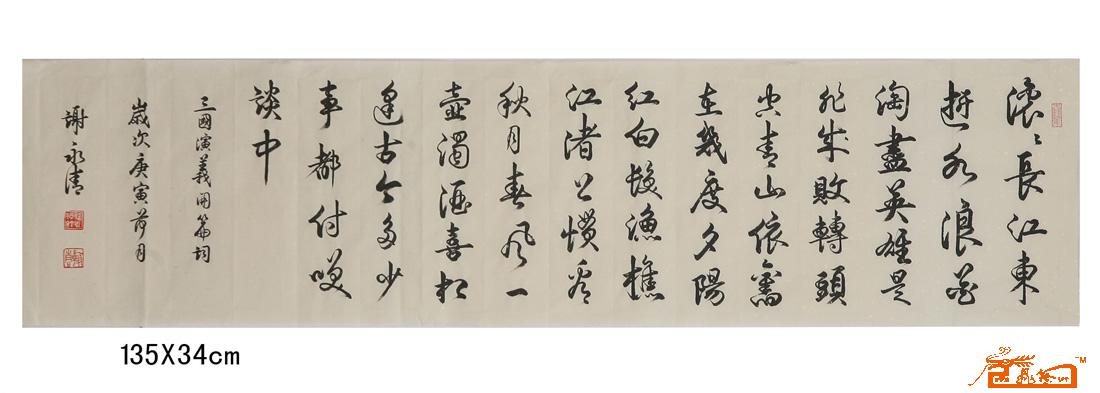 滚〻長江東
逝水浪花
淘盡英雄是
非成敗轉頭
空青山依舊
在幾度夕陽
紅白髮漁樵
江渚上慣看
秋月春風一
壺濁酒喜相
逢古今多少
事都付笑
談中
三國演義開篇詞
歲次庚寅荷月
謝永清
135X34cm
TM